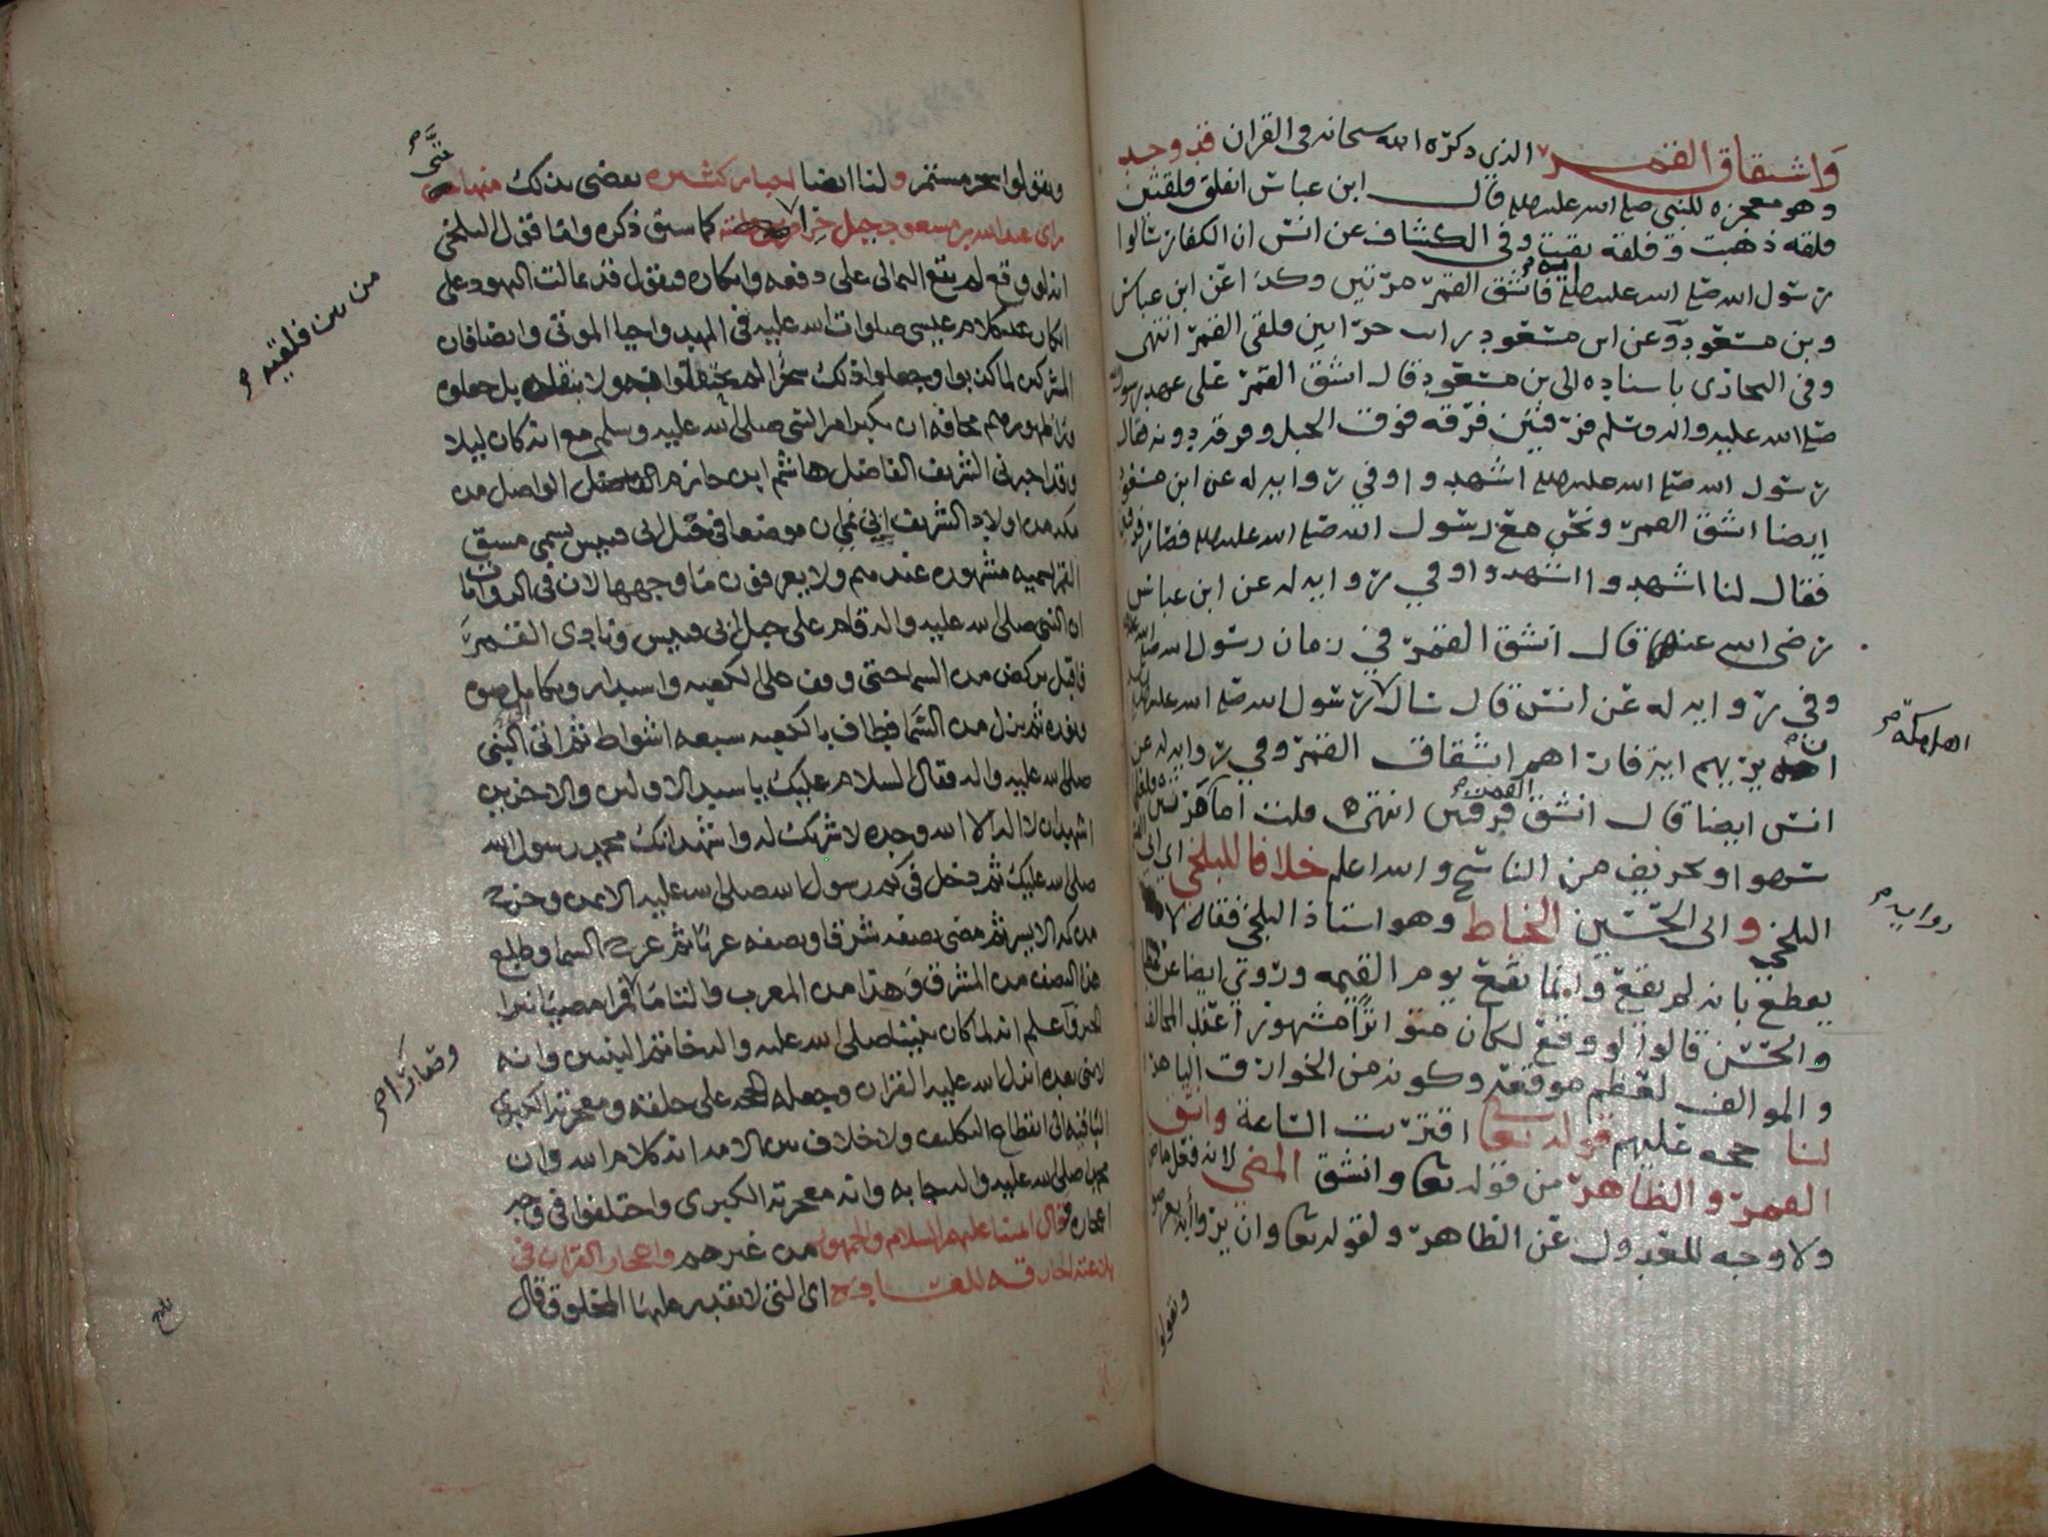 وانشقاق القمر الذي ذكره الله سبحانه في القران قد وجد
وهو معجزه للنبي صلى الله عليه قال ابن عباس انفلق فلقتين
فلقه ذهبت وفلقه بقيت وفي الكشاف عن انس ان الكفار سالوا
رسول الله صلى الله عليه ايه فانشق القمر مرتين وكذا عن ابن عباس
وبن مسعود وعن ابن مسعود رايت حرا بين فلقي القمر انتهى
وفي البخاري باسناده الى بن مسعود قال انشق القمر على عهد رسول
صلى الله عليه واله وسلم فرقتين فرقه فوق الجبل وفرقه دونه فقال
رسول الله صلى الله عليه اشهدوا وفي روايه له عن ابن مسعود
ايضا انشق القمر ونحن مع رسول الله صلى الله عليه فصار فرقتين
فقال لنا اشهدوا اشهدوا وفي روايه له عن ابن عباس
رضي الله عنه قال انشق القمر في زمان رسول الله صلى الله عليه
وفي روايه له عن انس قال سال رسول الله صلى الله عليه
اهل مكة
ان يريهم ايه فاراهم انشقاق القمر وفي روايه له عن
انس ايضا قال انشق القمر فرقتين انتهى قلت اما مرتين فلعله
سهوا او تحريف من الناسخ والله اعلم خلافا للبلخي اي ابي القاسم
البلخي والى الحسين الخياط وهو استاذ البلخي فقالا لا
روايه
يقطع بانه لم يقع وانما يقع يوم القيمه وروي ايضا عن عطا
والحسن قالوا لو وقع لكان متواترا مشهورا عند المخالف
والموالف لعظم موقعه وكونه من الخوارق الباهره
لنا حجه عليهم قوله تعا اقتربت الساعة وانشق
القمر والظاهر من قوله تعا وانشق المضي لانه فعل ماض
ولا وجه للعدول عن الظاهر ولقوله تعا وان يروا ايه يعرضوا
ويقولوا
ويقولوا سحر مستمر ولنا ايضا اخبار كثيره تقضي بذلك منها
حتى
راى عبد الله بن مسعود جبل حرا كما سبق ذكره واما قول البلخي
من بين فلقتيه
انه لو وقع لم يقع التمالي على دفعه وانكاره فنقول قد تمالت اليهود على
انكار كلام عيسى صلوات الله عليه في المهد واحيا الموتى وايضا فان
المشركين لما كذبوا وجعلوا ذلك سحرا لم يحتفلوا به ولا بنقله بل جعلوه
ورا ظهورهم مخافه ان يكبر امر النبي صلى الله عليه وسلم مع انه كان ليلا
وقد اخبرني الشريف الفاضل هاشم ابن حازم الواصل من
مكه من اولاد الشريف ابي نمي ان موضعا في جبل ابي قبيس يسمى مشق
القمر تسميه مشهوره عندهم ولا يعرفون ما وجهها الان في الروايات
ان النبي صلى الله عليه واله قام على جبل ابي قبيس ونادى القمر
فاقبل يركض من السما حتى وقف على الكعبه واستدار وتكامل ضوه
ونوره ثم نزل من السما فطاف بالكعبه سبعه اشواط ثم اتى الى النبي
صلى الله عليه واله فقال السلام عليك يا سيد الاولين والاخرين
اشهد ان لا اله الا الله وحده لا شريك له واشهد انك محمد رسول الله
صلى الله عليك ثم دخل في كم رسول الله صلى الله عليه الايمن وخرج
من كمه الايسر ثم مضى نصفه شرقا ونصفه غربا ثم عرج السما وطلع
هذا النصف من المشرق وهذا من المغرب والتاما قمرا مضيا نيرا
وصارا
واعلم انه لما كان نبينا صلى الله عليه واله خاتم النبيين وانه
لا نبي بعده انزل الله عليه القران وجعله الحجه على خلقه ومعجزته الكبرى
الباقيه الى انقطاع التكليف ولا خلاف بين الامه انه كلام الله وان
محمدا صلى الله عليه واله جا به وانه معجزته الكبرى واختلفوا في وجه
اعجازه فقال ائمتنا عليهم السلام والجمهور من غيرهم واعجاز القران في
بلاغته الخارقه للعاده اي التي لا يقدر عليها المخلوق قال